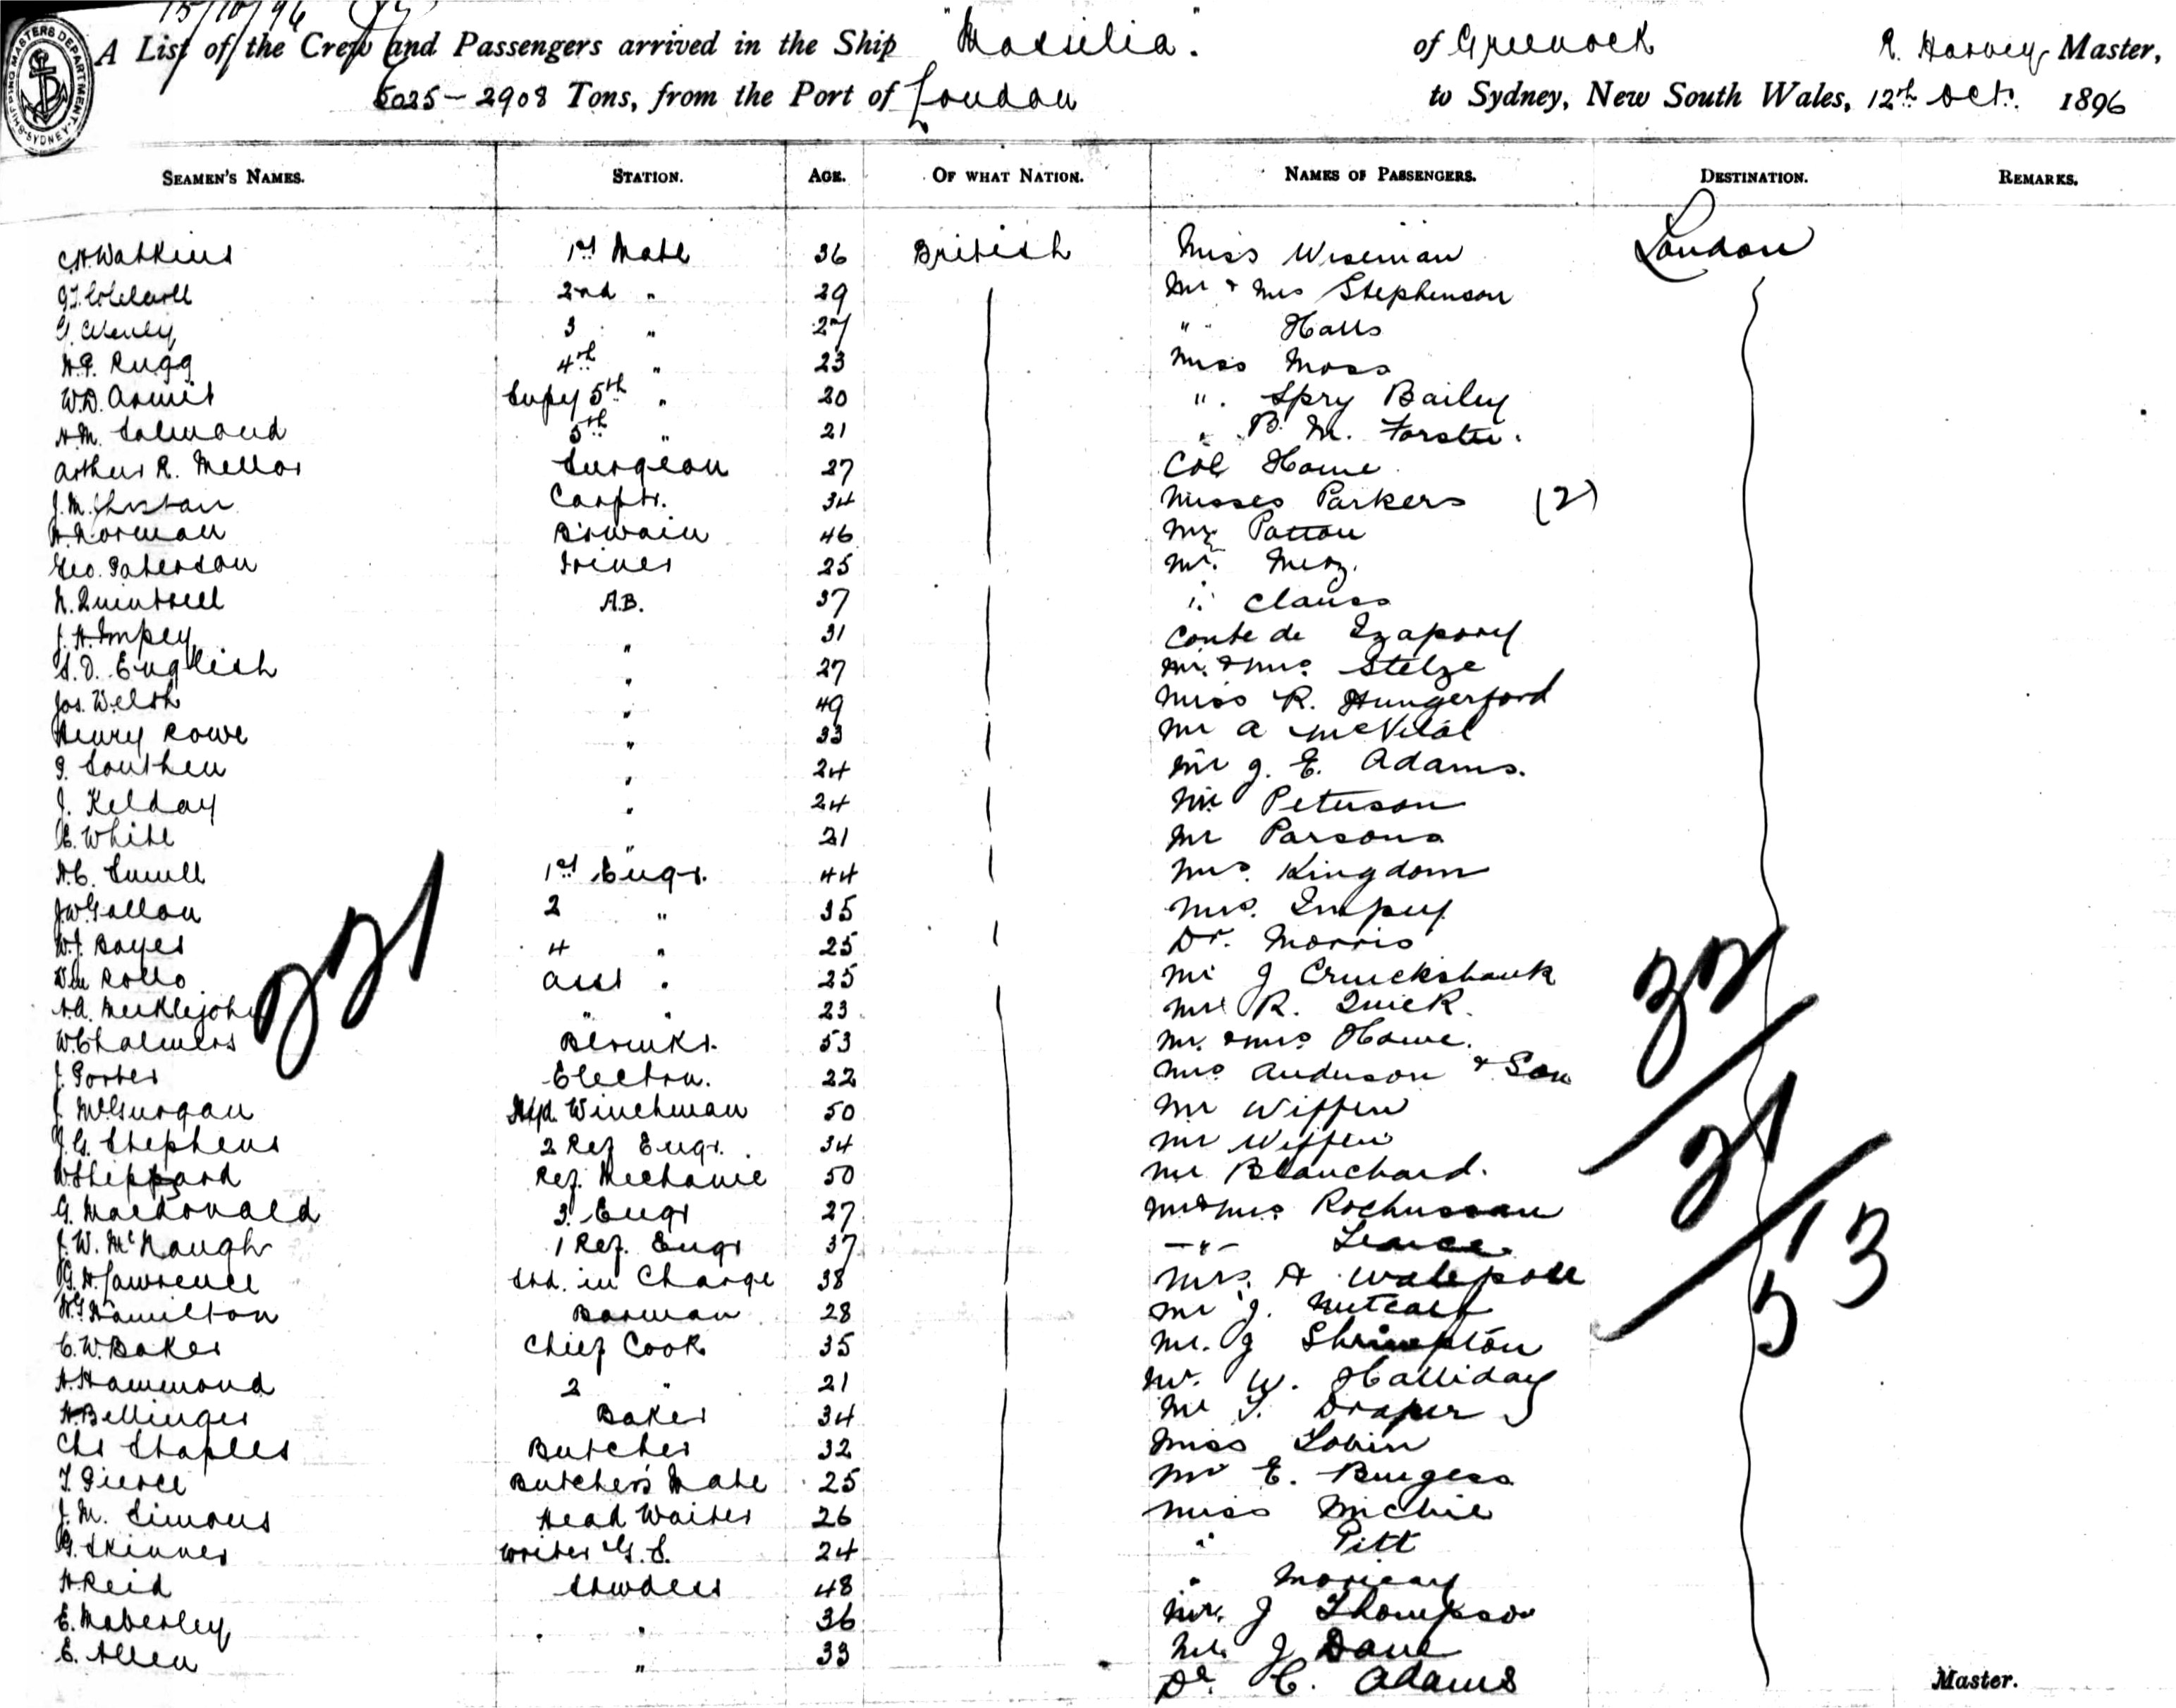 15/10/96
SHIPPING MASTERS DEPARTMENT SYDNEY
A List of the Crew and Passengers arrived in the Ship "Massilia" of Greenock R. Harvey Master,
5025 - 2908 Tons, from the Port of London to Sydney, New South Wales, 12th Oct. 1896
SEAMEN'S NAMES. STATION. AGE. OF WHAT NATION. NAMES OF PASSENGERS. DESTINATION. REMARKS.
C.H. Watkins 1st Mate 36 British Miss Wiseman London
2nd " 29 Mr & Mrs Stephenson
3 " 27 " " Halls
H.P. Rugg 4th " 23 Miss Moss
W.D. Armit Supy 5th " 20 " Spry Bailey
H.M. Salmond 5th " 21 " B. M. Forster.
Arthur R. Mellor Surgeon 27 Col Home
J.M. Carptr. 34 Misses Parkers (2)
H. Norman B'swain 46 Mr Patton
Geo. Paterson 25 Mr. Merz.
N. Quintrell A.B. 37 " Clauss
J.H. Impey " 31 Conte de
S.D. English " 27 Mr. & Mrs. Stelze
Jos. Welsh " 49 Miss R. Hungerford
Henry Rowe " 33 Mr A
Southen " 24 Mr J. E. Adams.
J. Kelday " 24 Mr Peterson
E. White " 21 Mr Parsons
H.C. 1st Engr. 44 Mrs. Kingdom
J.W. Gallon 2 " 35 Mrs. Impey
W.J. Bayes 4 " 25 Dr. Morris
Wm Rollo Asst " 25 Mr J Cruickshank
A. Meiklejohn " " 23 Mr R. Quick.
W. Chalmers Blrmkr. 53 Mr. & Mrs Howe.
J. Porter Electrn. 22 Mrs Anderson & Son
J. McGurgan Hyd. Winchman 50 Mr Wiffen
J.G. Stephens 2 Ref Engr. 34 Mr Wiffen
W Sheppard Ref. Mechanic 50 Mr Blanchard.
G. Macdonald 3. Engr 27 Mr & Mrs Rochussen
J.W. McNaugh 1 Ref. Engr 37 - " -
G.H. Lawrence Std. in Charge 38 Mrs. A Walepole
Hamilton Barman 28 Mr J. Metcalf
C.W. Baker Chief Cook 35 Mr. J Shrimpton
H. Hammond 2 " 21 Mr. W. Halliday
H. Bellinger Baker 34 Mr T. Draper
Chs Staples Butcher 32 Miss Lobin
T. Pierce Butcher's Mate 25 Mr E. Burgess
J.M. Simons Head Waiter 26 Miss Michie
G. Skinner Writer G.S. 24 " Pitt
H Reid Stwdess 48 "
E. Moberley " 36 Mr. J Thompson
E. Allen " 33 Mr. J Dane
Dr. C. Adams
221
32
21
53
Master.